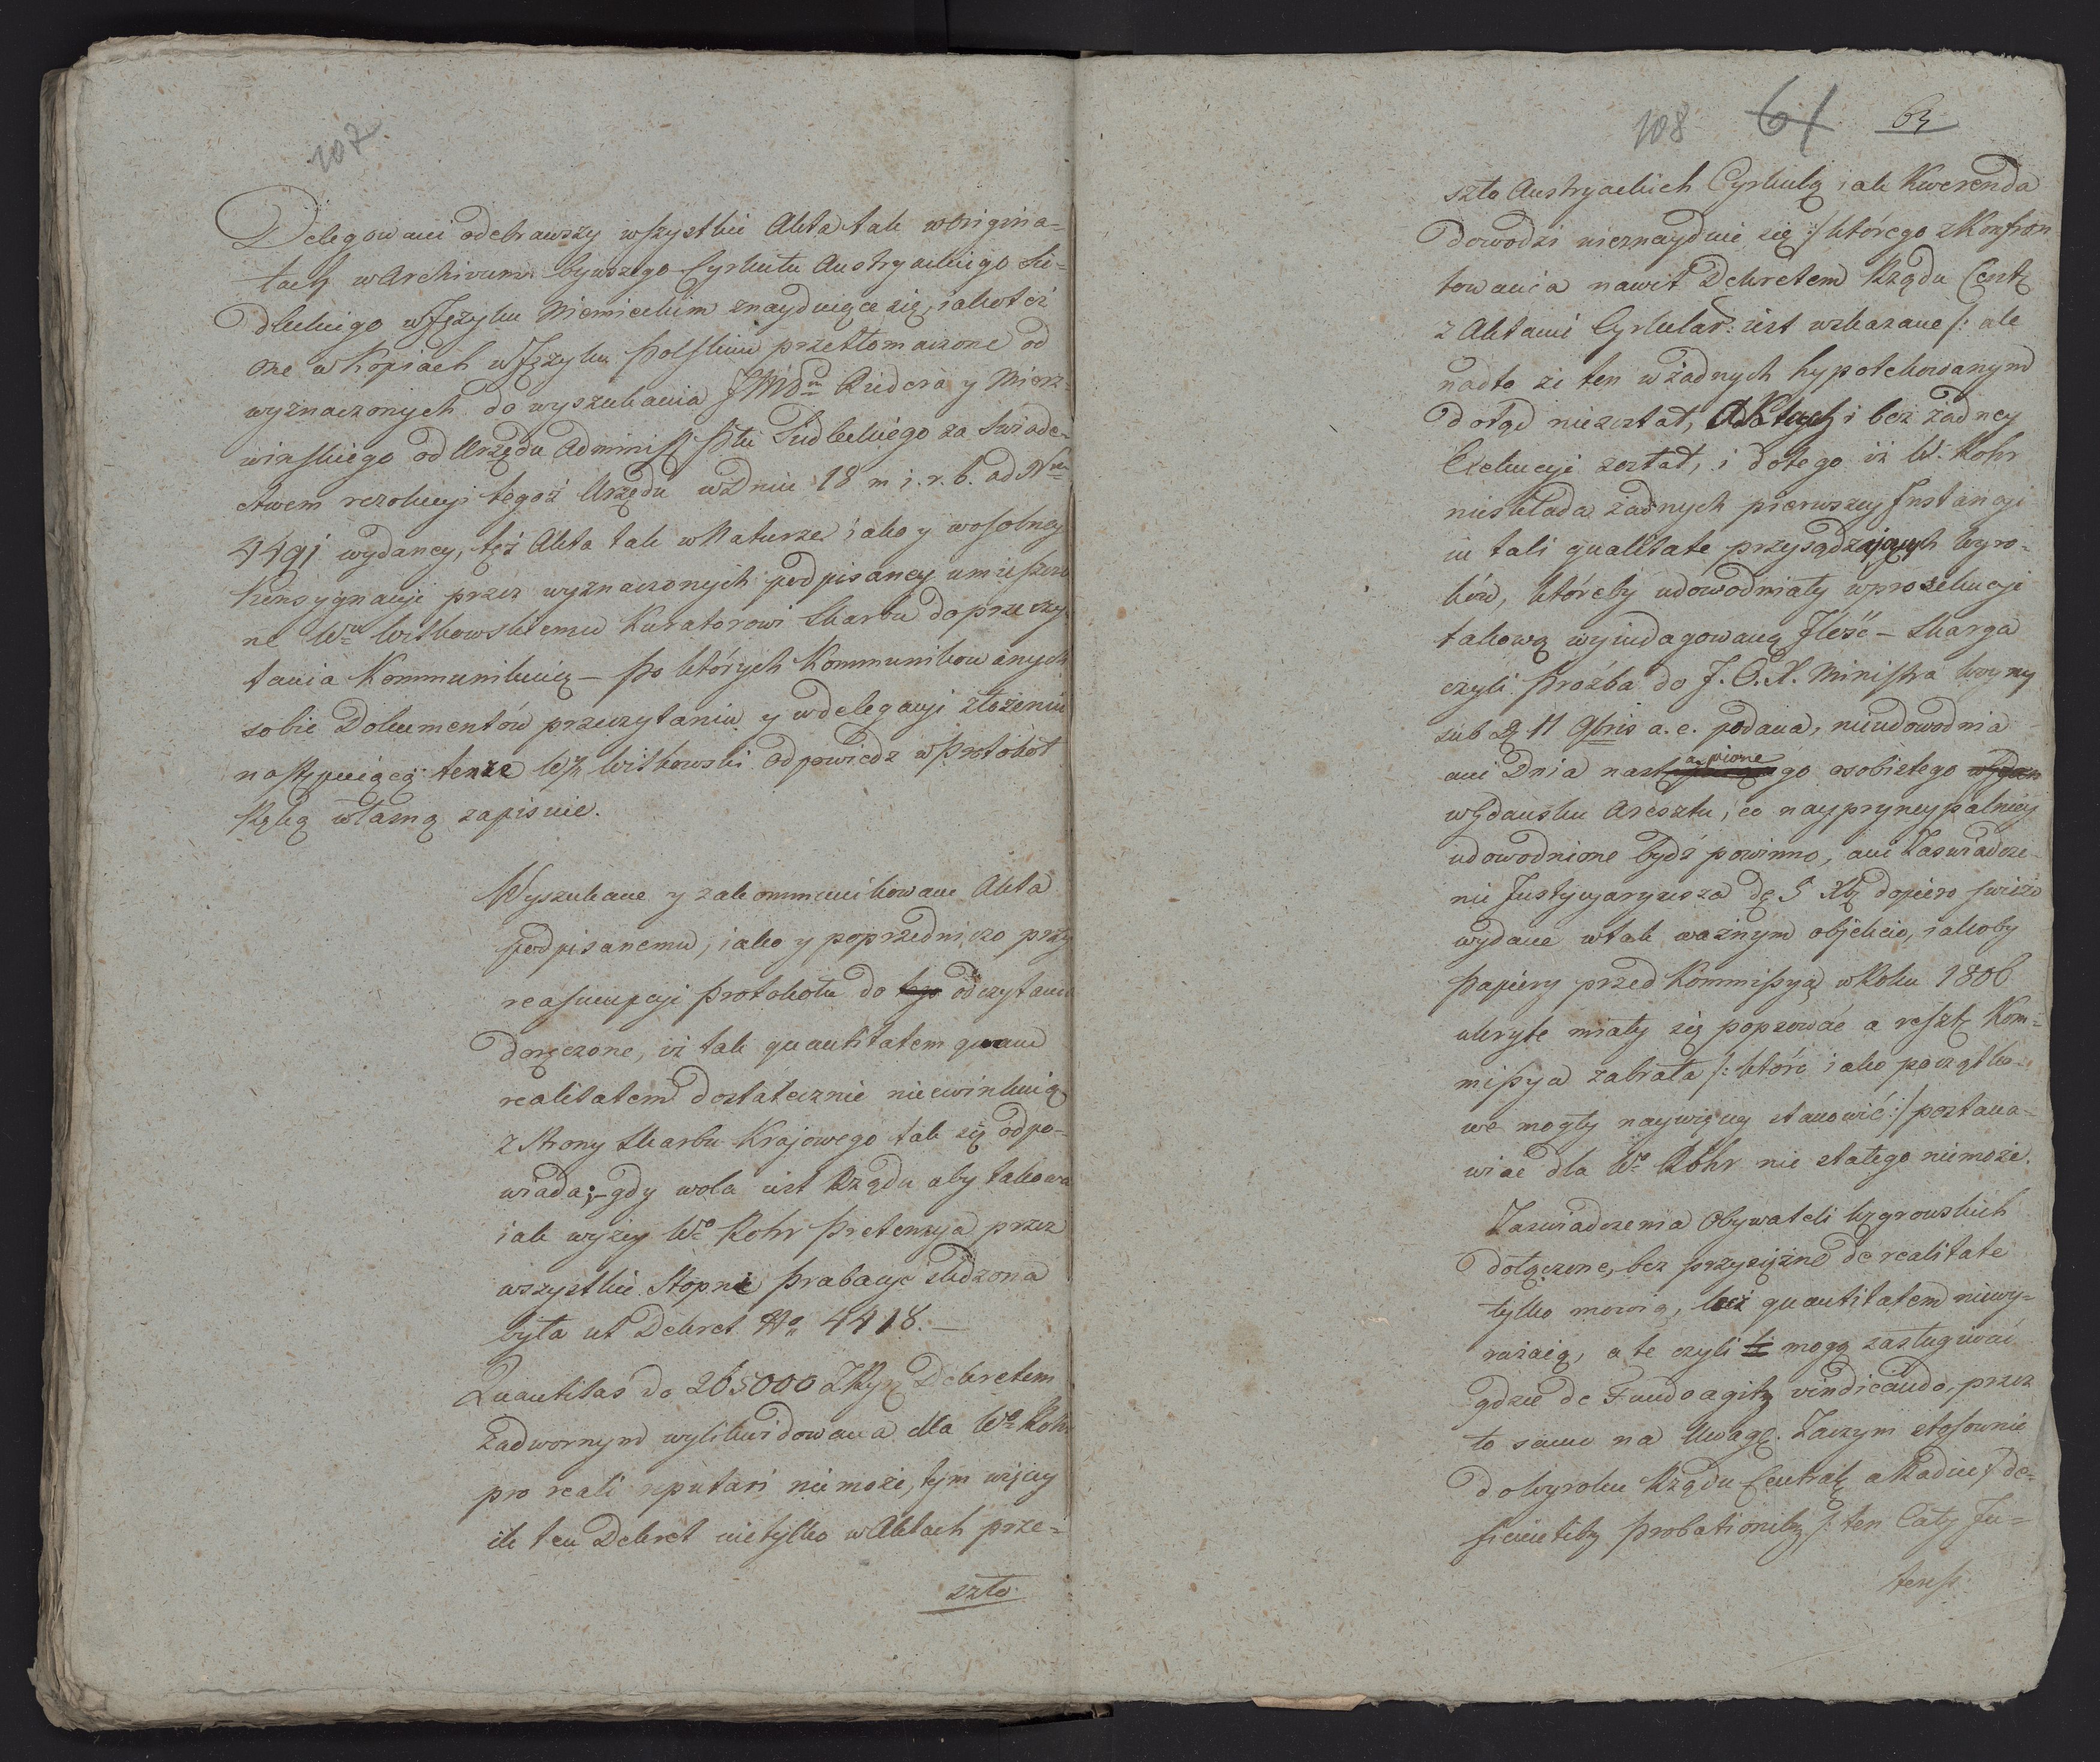 107
Delegowani odebrawszy wszystkie Akta tak w Origina-
łach w Archivum bywszego Cyrkułu Austryackiego Sie-
dleckiego w Języku Niemieckim znayduiące się, iakoteż
one w Kopiach w Języku Polskim przetłomaczone od
wyznaczonych do wyszukania JMść Rudera y Mierz-
wińskiego od Urzędu Administ Ptu Siedleckiego za Świade-
ctwem rezolucyi tegoż Urzędu w Dniu 18 m i. r. b. ad Nrm
4491 wydaney, też Akta tak w Naturze iako y w osobney
Konsygnacyi przez wyznaczonych podpisaney umieszczo
ne Wmu Witkowskiemu Kuratorowi Skarbu do przeczy-
tania Kommunikuią — Po których Kommunikowanych
sobie Dokumentów przeczytaniu y w delegacyi złożeniu
następuiącą tenże W Witkowski odpowiedz w Protokół
Ręką własną zapisuie.
Wyszukane y zakommunikowane Akta
podpisanemu, iako y poprzedniczo przy
reasumpcyi Protokołu do tego odczytania
doręczone, iż tak quantitatem quam
realitatem dostatecznie nieewinkuią
z Strony Skarbu Krajowego tak się odpo-
wiada; – gdy wola iest Rządu aby takowa
iak wyżey W° Rohr Pretensya przez
wszystkie Stopnie Prabacyi śledzona
była ut Dekret N° 4418. —
Quantitas do 265000 ZRyn Dekretem
Zadwornym wylikwidowana dla W° Rohr
pro reali reputari niemoże, tym więcey
ile ten Dekret nietylko w Aktach prze-
szło
108 61 63
szło Austryackich Cyrkułu iak Kwerenda
dowodzi nieznayduie się /: którego z Konfron
towania nawet Dekretem Rządu Cent
z Aktami Cyrkular: iest wskazane /: ale
nadto że ten w żadnych hypotekowanym
dotąd niezostał, Aktach i bez żadney
Exekucyi został, i do tego iż W. Rohr
nieskłada żadnych pierwszey Instancyi
in tali qualitate przysądzaiących Wyro-
ków, któreby udowodniały w prosekucyi
takową wyindagowaną Ilość – Skarga
czyli Proźba do J. O. X. Ministra Woyny
sub D 11 9bris a. c. podana, nieudowodnia
ani Dnia nastąpione go osobistego
w Gdańsku Aresztu, co naypryncypalniey
udowodnione bydź powinno, ani Zaświadcze-
nie Justycyaryusza de 5 Xb dopiero świeżo
wydane w tak ważnym objekcie, iakoby
Papiery przed Kommissyą w Roku 1806
ukryte miały się popsować a resztę Kom-
missya zabrała /: które iako początko-
we mogły naywięcey stanowić :/ postana-
wiać dla W° Rohr nic stałego niemoże.
Zaświadczenia Obywateli Węgrowskich
dołączone, bez przysiężne de realitate
tylko mowią, lecz quantitatem niewy-
rażaią, a te czyli mogą zasługiwać
gdzie de Fundo agitur vindicando, przez
to samo na Uwagę. Zaczym stosownie
do Wyroku Rządu Central
ficientibus Probationibus /: ten Cały In-
teress